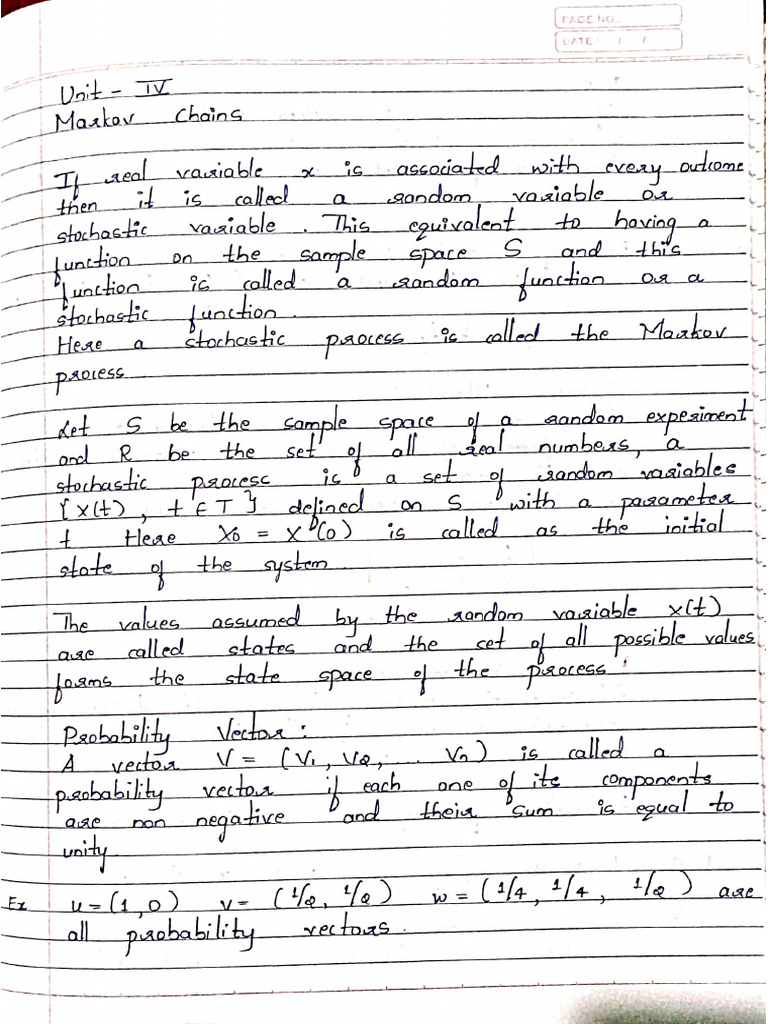 PAGE NO.:
DATE: / /
Unit - IV
Markov Chains
If real variable x is associated with every outcome
then it is called a random variable or
stochastic variable. This equivalent to having a
function on the sample space S and this
function is called a random function or a
stochastic function.
Here a stochastic process is called the Markov
process
Let S be the sample space of a random experiment
and R be the set of all real numbers, a
stochastic process is a set of random variables
{X(t), t ∈ T} defined on S with a parameter
t Here X0 = X(0) is called as the initial
state of the system
The values assumed by the random variable X(t)
are called states and the set of all possible values
forms the state space of the process.
Probability Vector:
A vector V = (V1, V2, ... Vn) is called a
probability vector if each one of its components
are non negative and their sum is equal to
unity
Ex u = (1, 0) v = (1/2, 1/2) w = (1/4, 1/4, 1/2) are
all probability vectors.